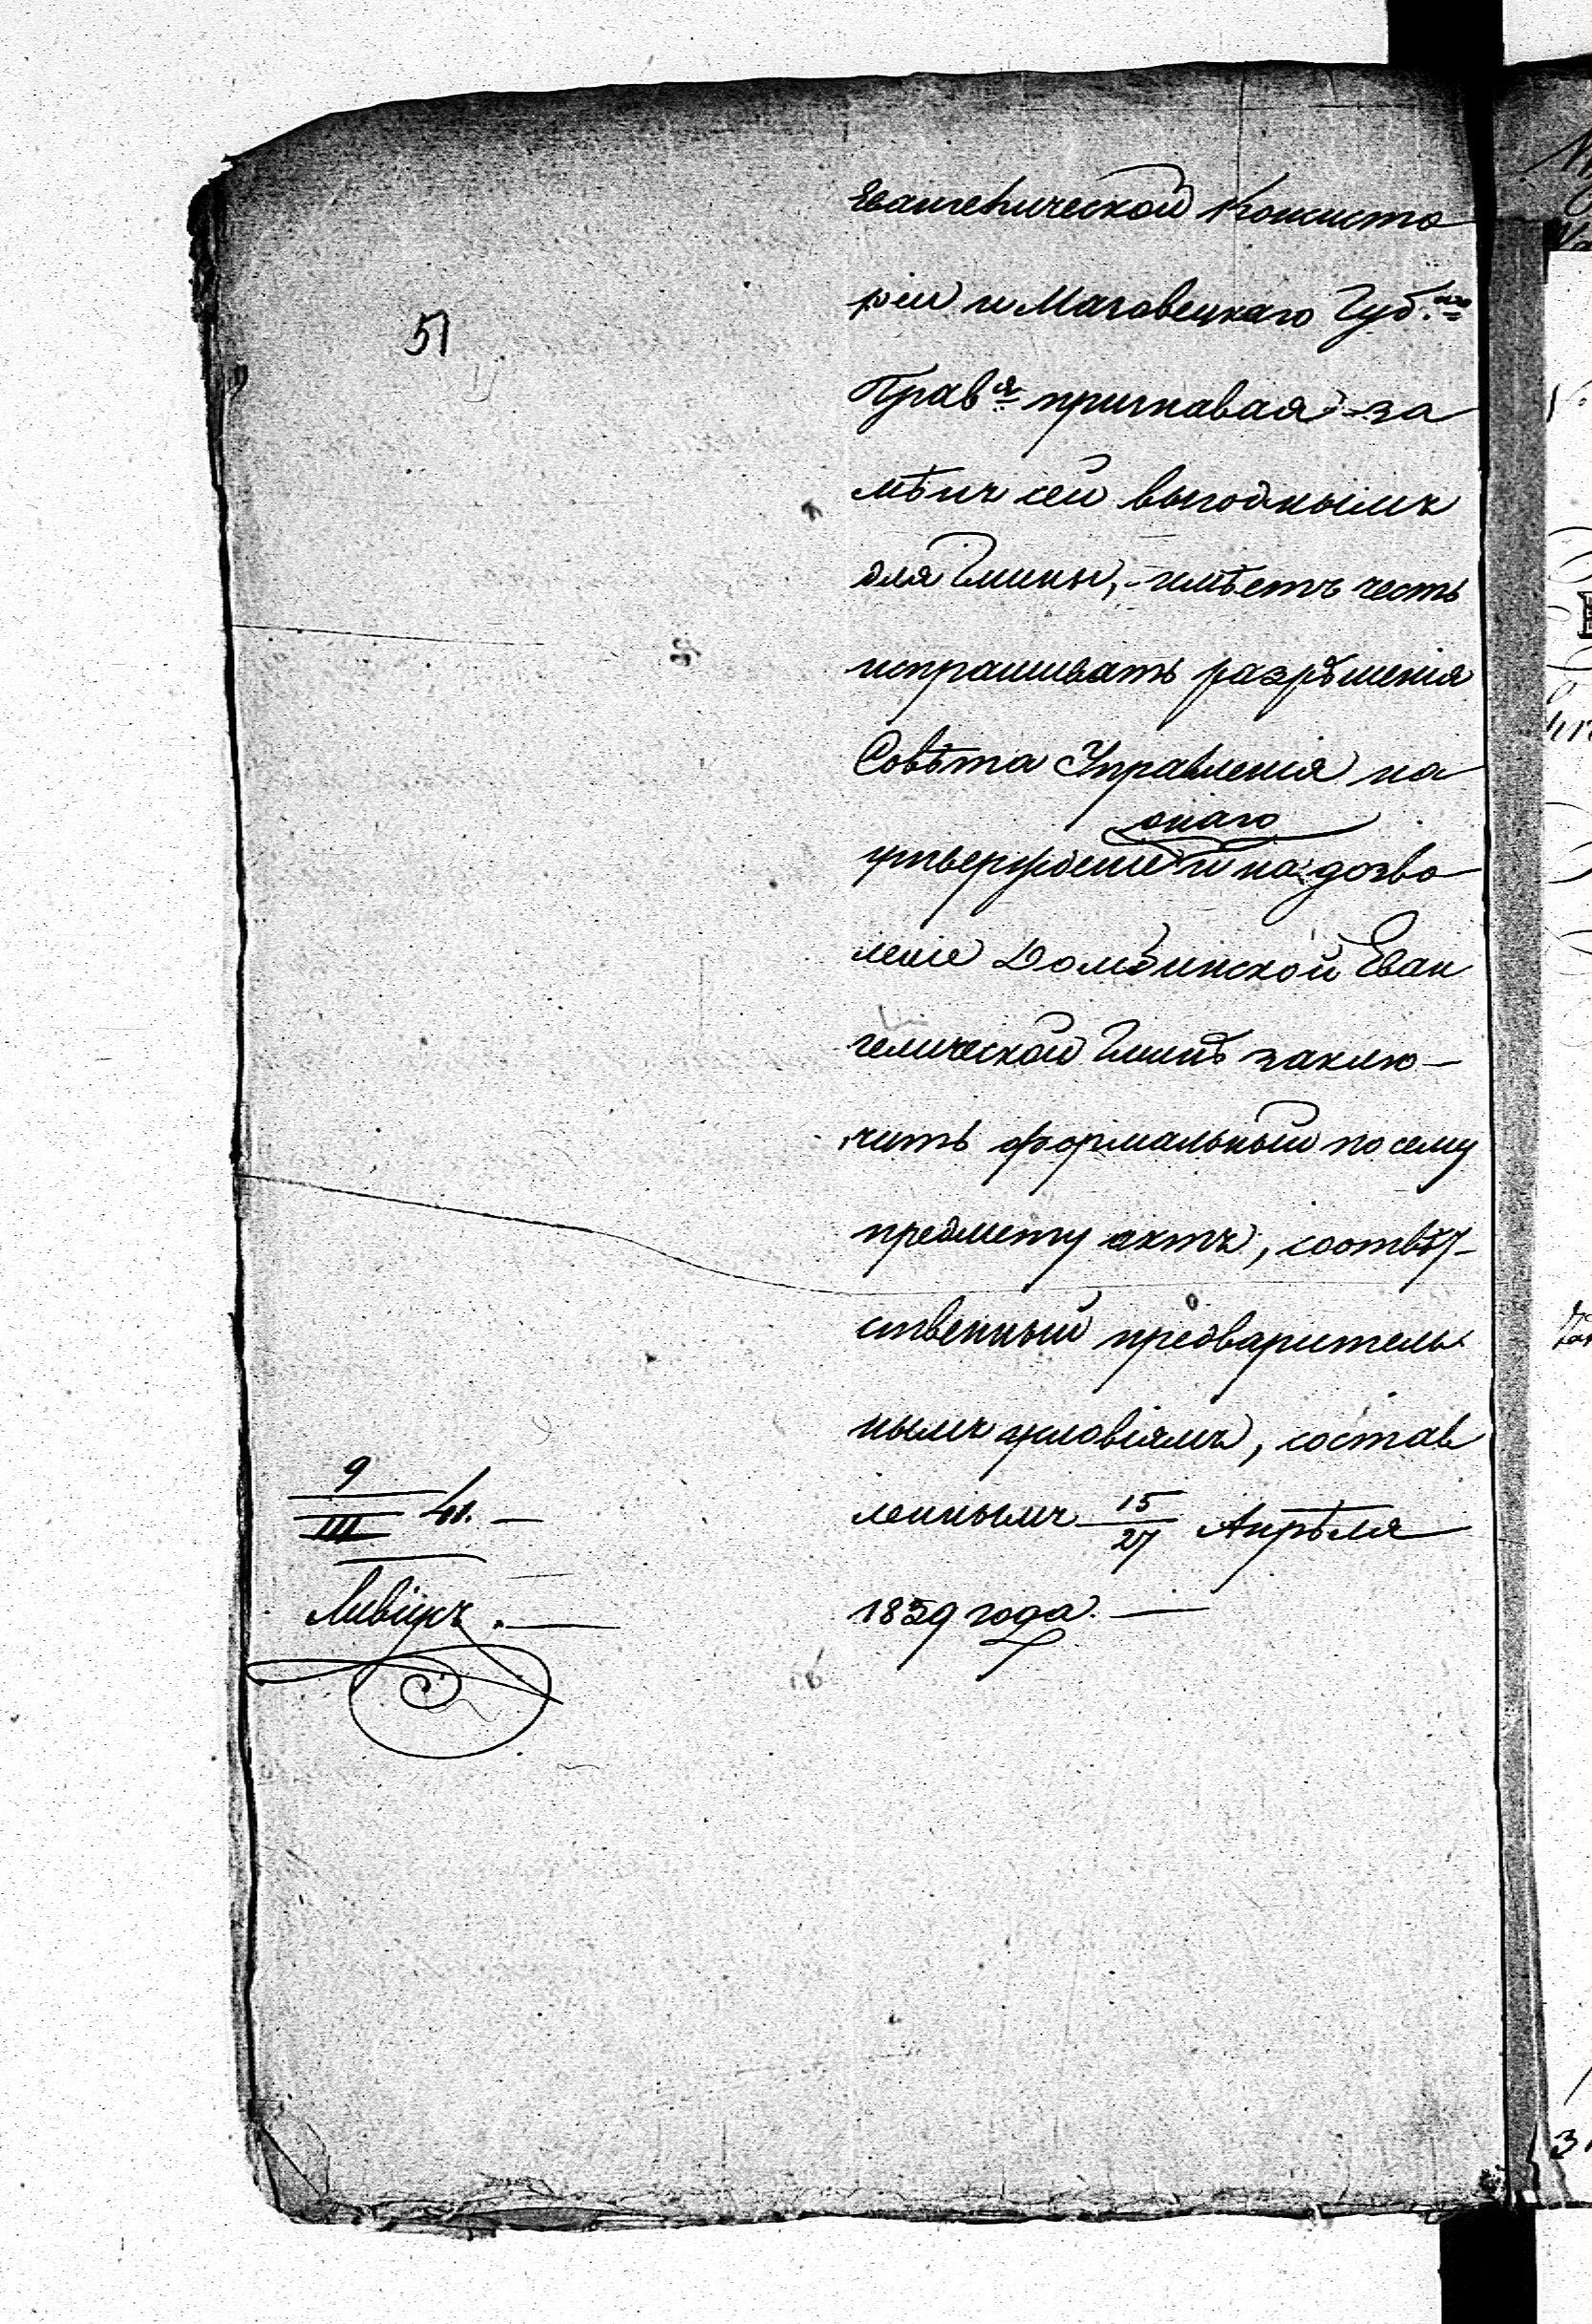 51
Евангелической Консисто
ріи и Мазовецкаго Губ.го
Правя признавая за
мѣнъ сей выгоднымъ
для Гмины, имѣетъ честь
испрашивать разрѣшенія
Совѣта Управленія на
онаго
утвержденіе и на дозво
леніе Домбинской Еван
гелической Гминѣ заклю-
чить формальный по сему
предмету актъ, соотвѣт-
ственный предваритель
нымъ условіямъ, состав
леннымъ 15/27 Апрѣля
1839 года.
9
III 41.